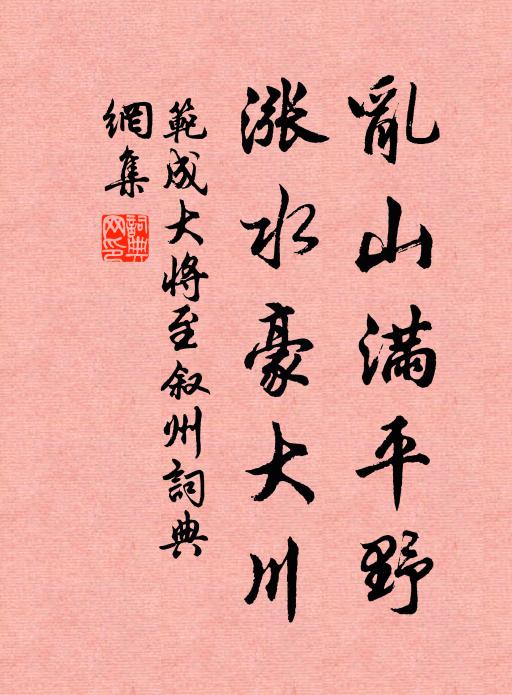 亂山滿平野
漲水豪大川
範成大將至敘州詞典
網集
詞典
网印